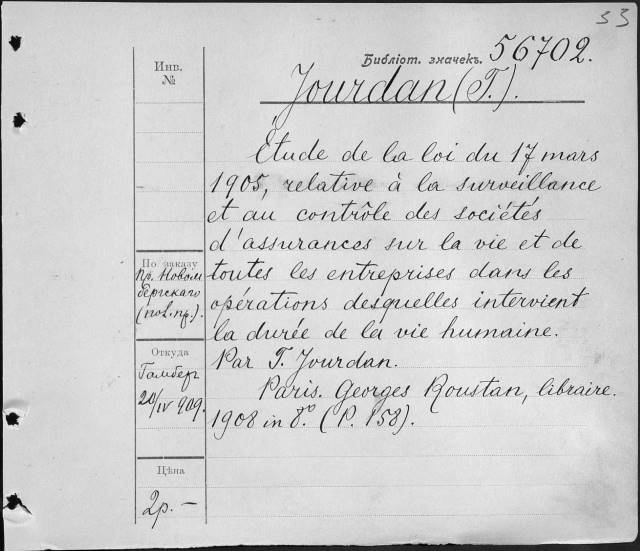 33
Библіот. значекъ. 56702.
Jourdan (T.).
Étude de la loi du 17 mars
1905, relative à la surveillance
et au contrôle des sociétés
d'assurances sur la vie et de
toutes les entreprises dans les
opérations desquelles intervient
la durée de la vie humaine.
Par T. Jourdan.
Paris. Georges Roustan, libraire.
1908 in 8.º (P. 158).
Инв.
№
По заказу
Пр. Новом
бергскаго
(пол. пр.).
Откуда
Гамберг
20/IV 909.
Цѣна
2р. –